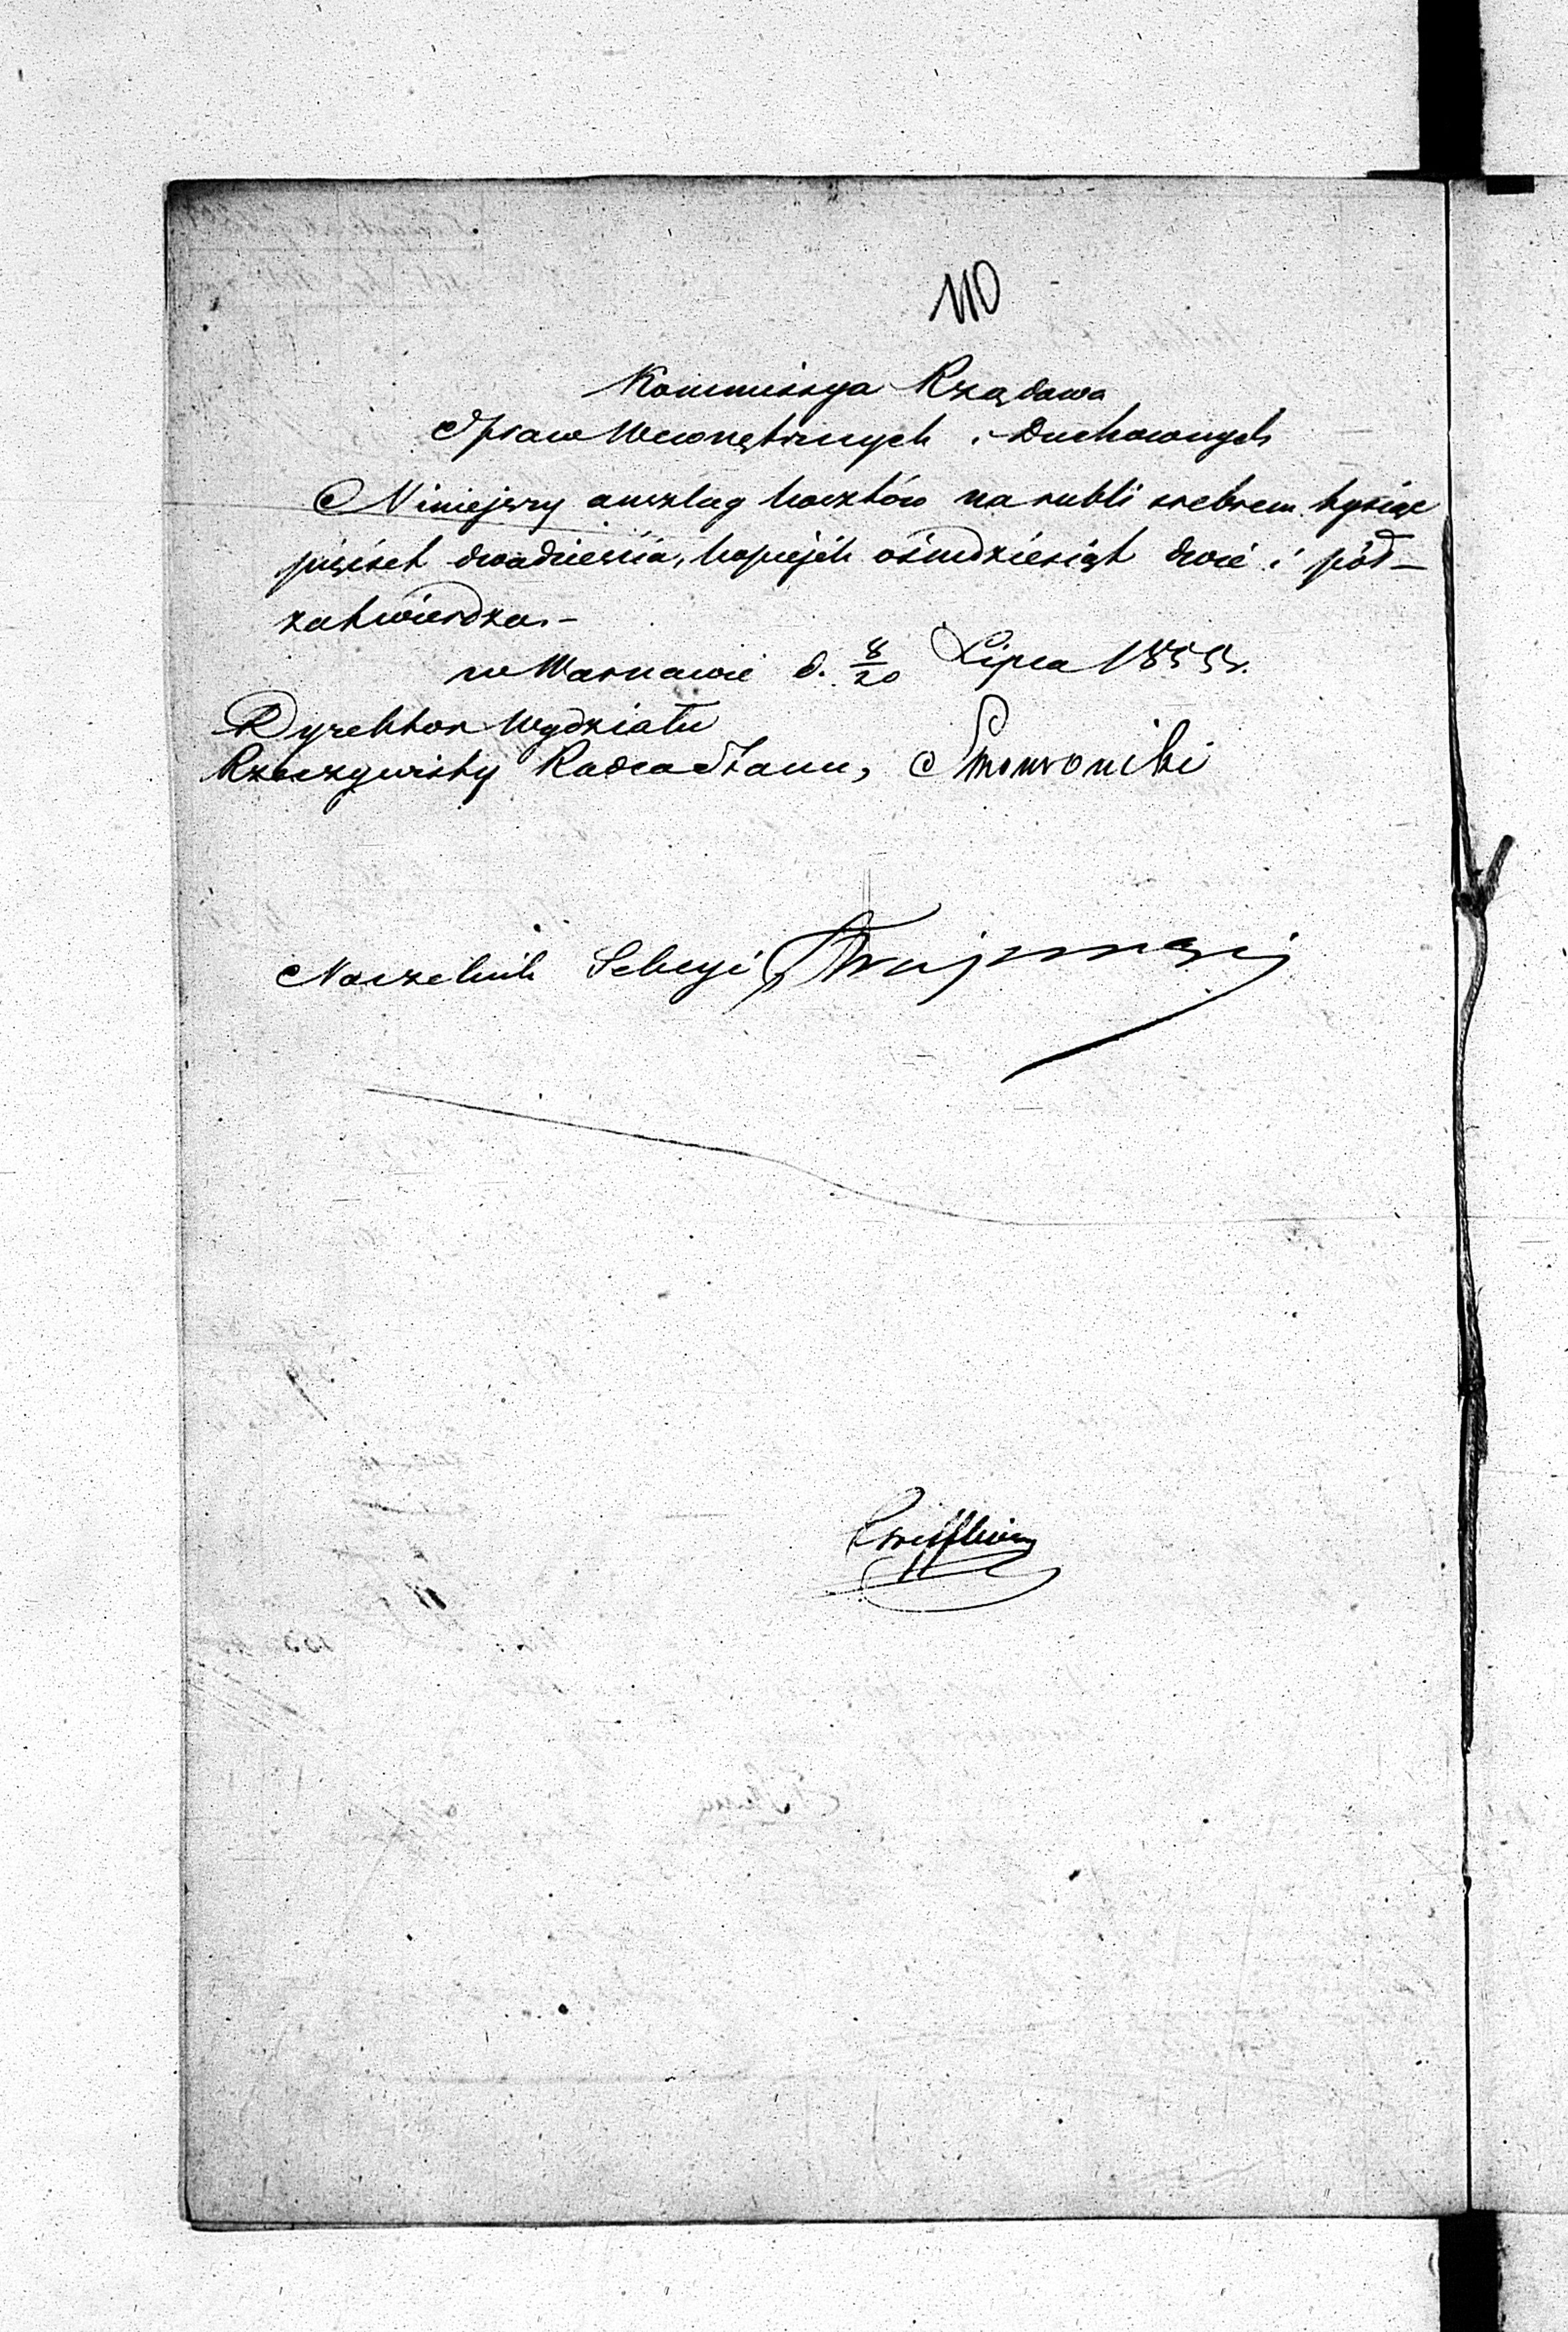 110
Kommissya Rządowa
Spraw Wewnętrznych i Duchownych
Niniejszy anszlag kosztów na rubli srebrem tysiąc
pięćset dwadzieścia, kopiejek ośmdziesiąt dwie i pół –
zatwierdza. –
w Warszawie d. 8/20 Lipca 1855 r.
Dyrektor Wydziału
Rzeczywisty Radca Stanu,
Naczelnik Sekcyi